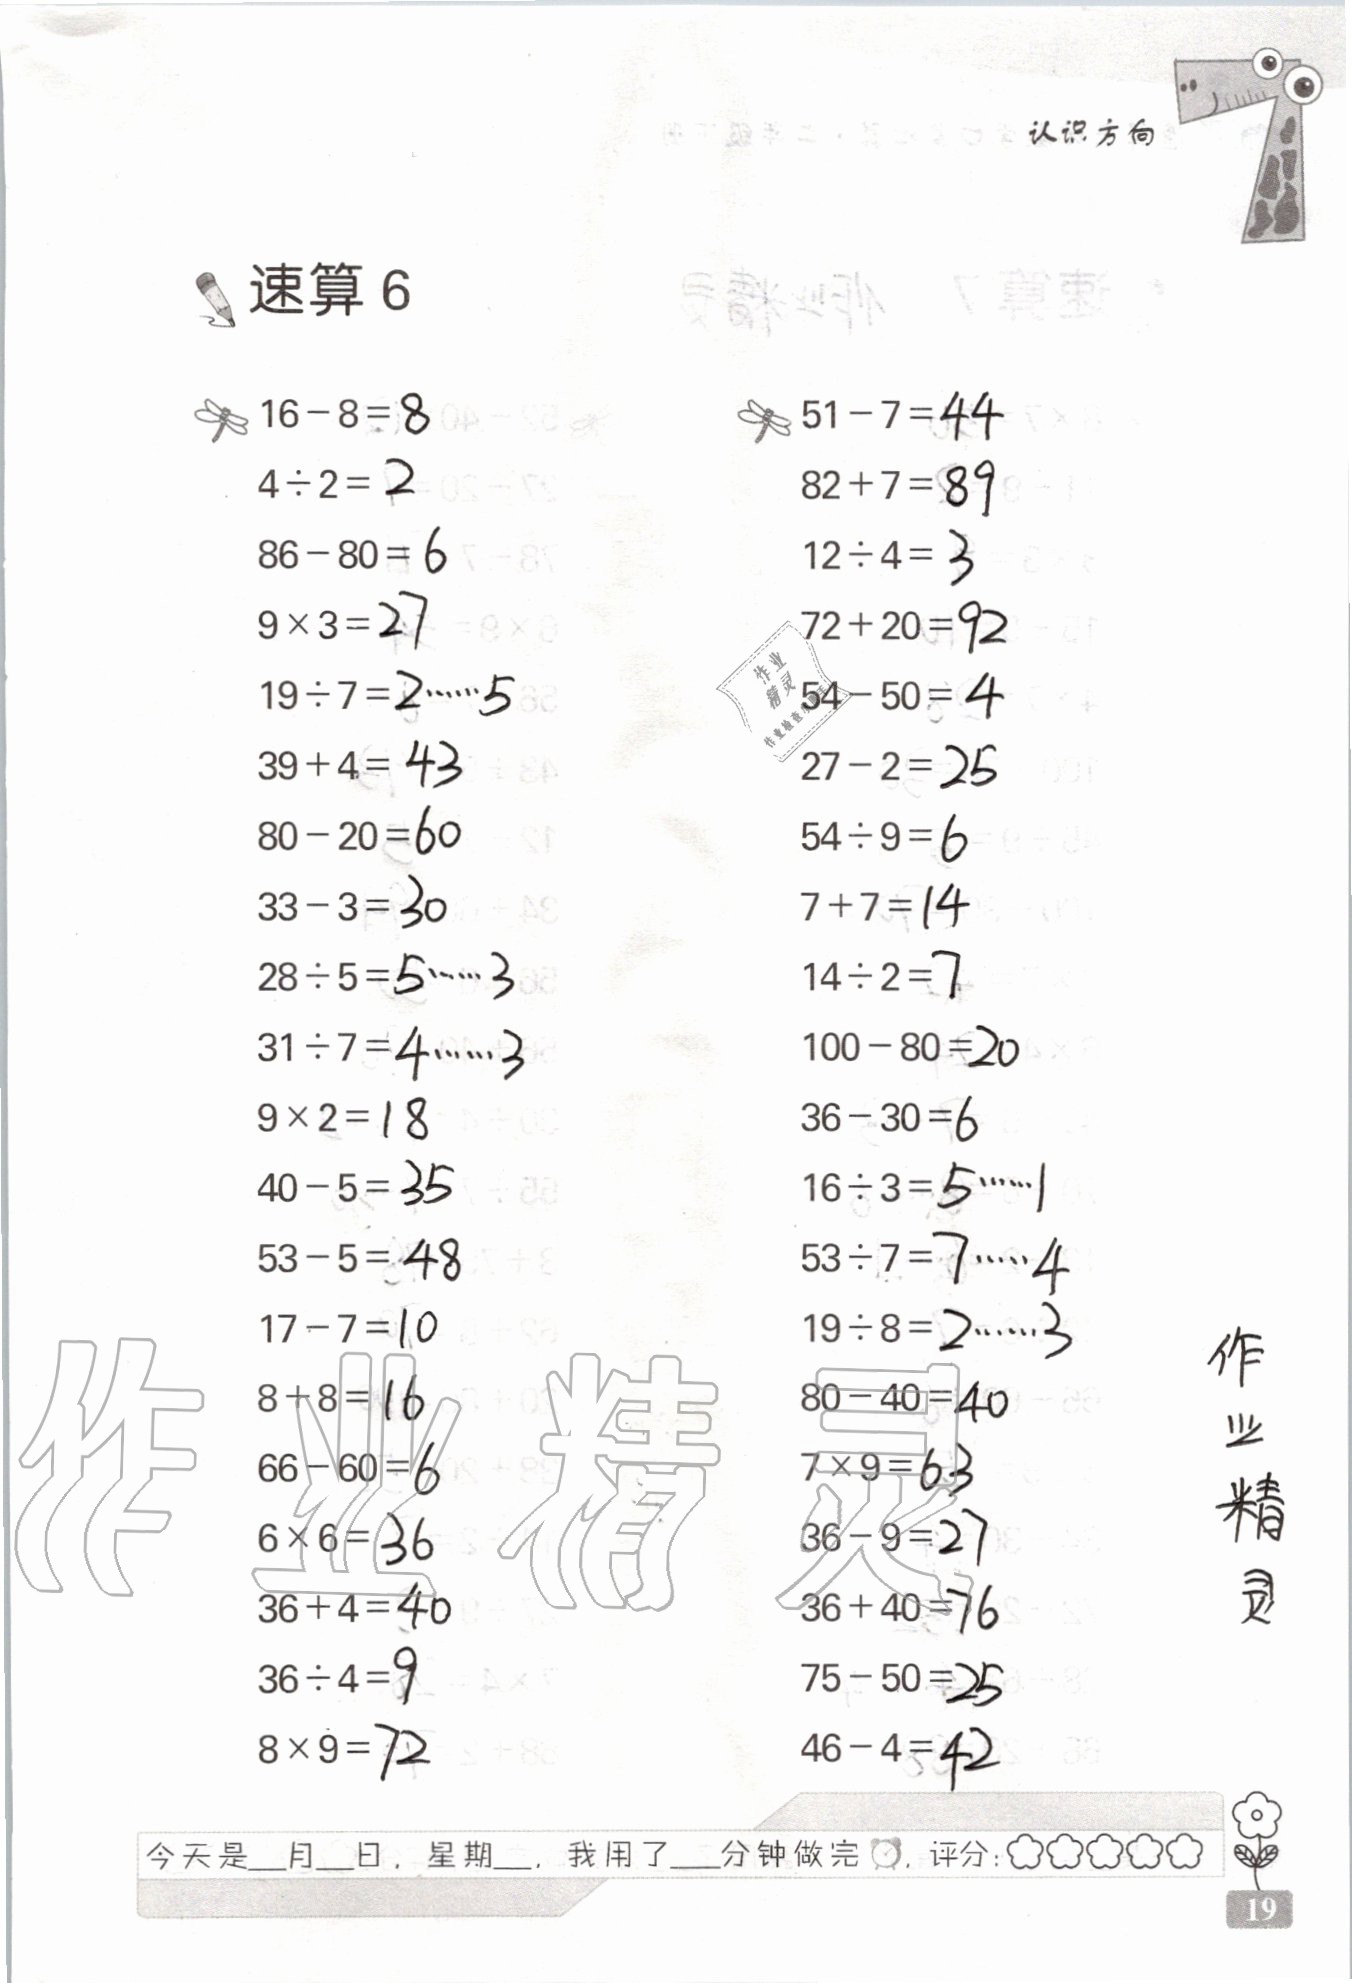 认识方向
速算 6
16-8=8
4÷2=2
86-80=6
9×3=27
19÷7=2……5
39+4=43
80-20=60
33-3=30
28÷5=5……3
31÷7=4……3
9×2=18
40-5=35
53-5=48
17-7=10
8+8=16
66-60=6
6×6=36
36+4=40
36÷4=9
8×9=72
51-7=44
82+7=89
12÷4=3
72+20=92
54-50=4
27-2=25
54÷9=6
7+7=14
14÷2=7
100-80=20
36-30=6
16÷3=5……1
53÷7=7……4
19÷8=2……3
80-40=40
7×9=63
36-9=27
36+40=76
75-50=25
46-4=42
作业
精灵
作业精灵
作业精灵
今天是__月__日，星期__，我用了___分钟做完，评分：
19